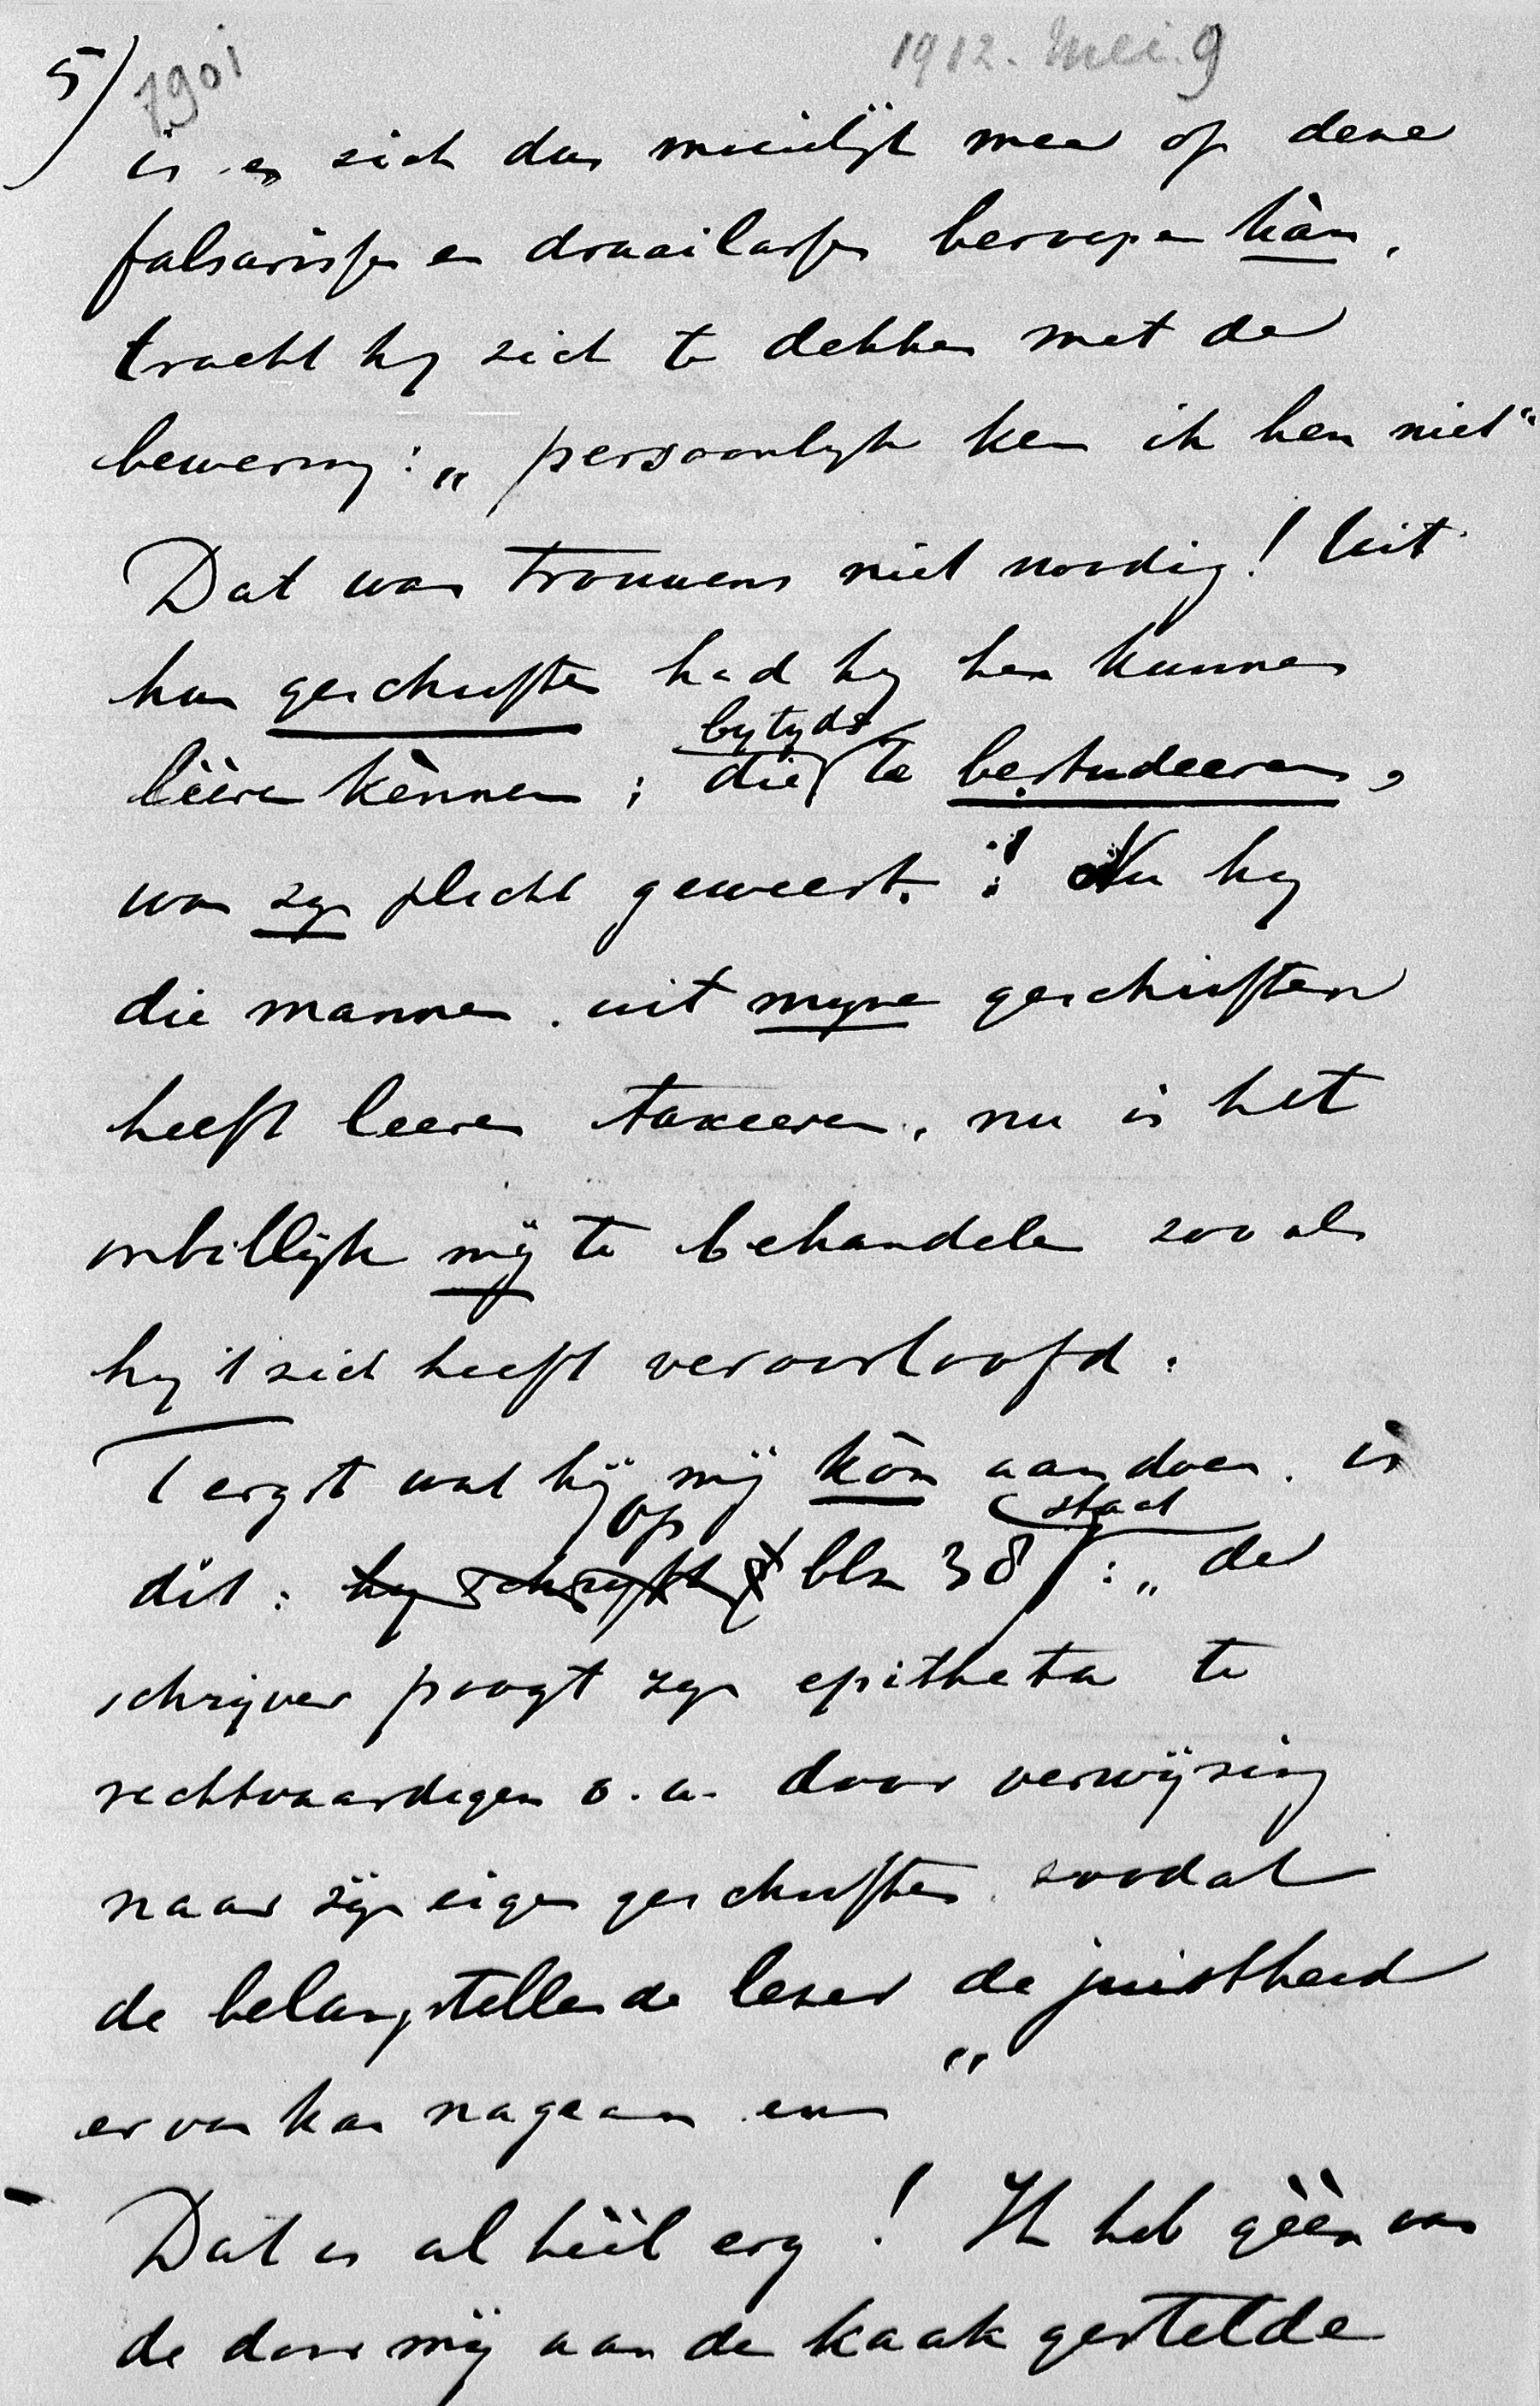 5/ 7901 1912. Mei. 9
is en zich dus moeielyk meer op deze
falsarissen en draailarssen beroepen kàn,
tracht hy zich te dekken met de
bewering: „persoonlyk ken ik hen niet"
Dat was trouwens niet noodig! Uit
hun geschriften had hy hen kunnen
bytyds
lèèren kènnen; die te bestudeeren,
was zyn plicht geweest.! Nu hy
die mannen uit myne geschriften
heeft leeren taxeeren, nu is het
onbillijk mij te behandelen zooals
hy 't zich heeft veroorloofd.
't ergst wat hij mij kòn aandoen is
op staat
dit: hy schryft blz 38: „de
schrijver poogt zyn epitheta te
rechtvaardigen o.a. door verwijzing
naar zijn eigen geschriften zoodat
de belangstellende lezer de juistheid
ervan kan nagaan en"
Dat is al hèèl erg! Ik heb gèèn van
de door mij aan de kaak gestelde